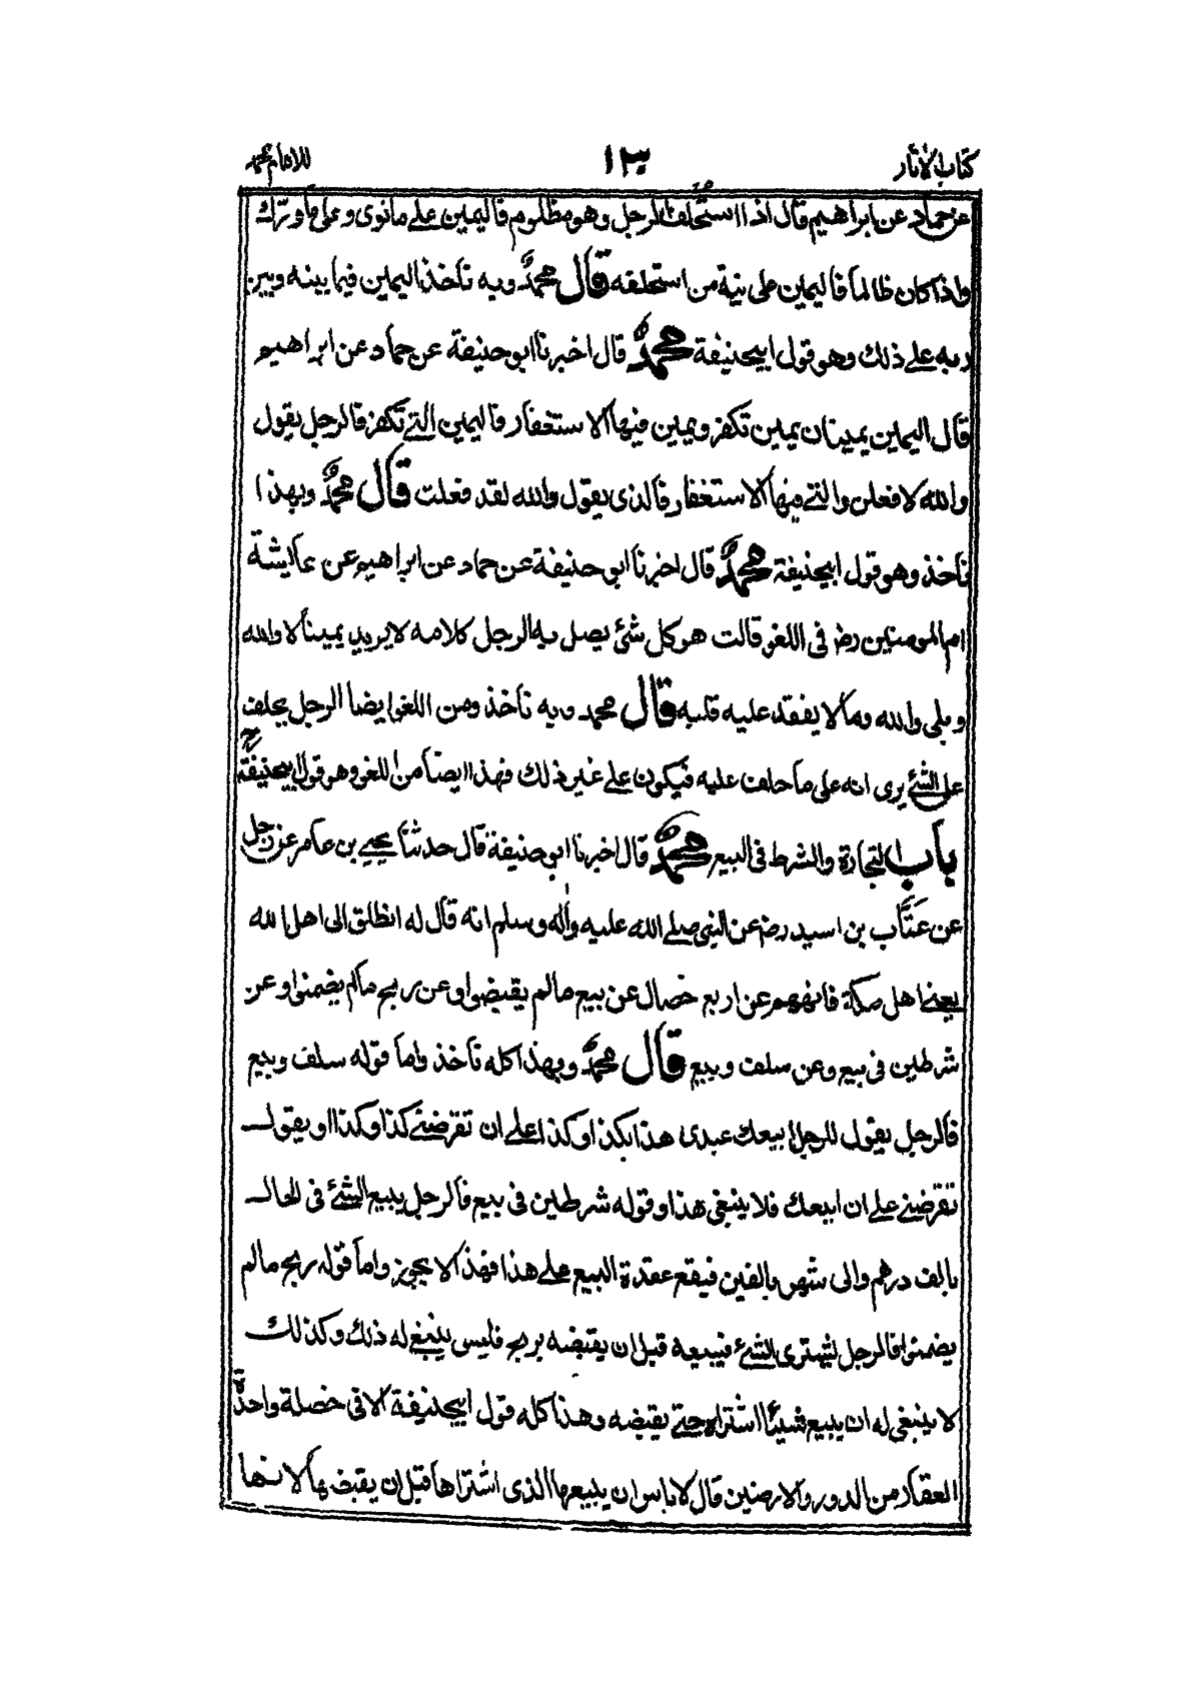 كتاب الآثار ١٣٠ للامام محمد
عن حماد عن ابراهيم قال اذا استحلف الرجل وهو مظلوم فاليمين على ما نوى وعلى ما ورّك
واذا كان ظالما فاليمين على نية من استحلفه قال محمد وبه نأخذ اليمين فيما بينه وبين
ربه على ذلك وهو قول ابيحنيفة محمد قال اخبرنا ابو حنيفة عن حماد عن ابراهيم
قال اليمين يمينان يمين تكفر ويمين فيها الاستغفار فاليمين التي تكفر فالرجل يقول
والله لافعلن والتي فيها الاستغفار فالذي يقول والله لقد فعلت قال محمد وبهذا
نأخذ وهو قول ابيحنيفة محمد قال اخبرنا ابو حنيفة عن حماد عن ابراهيم عن عايشة
ام المومنين رض فى اللغو قالت هو كل شئ يصل به الرجل كلامه لا يريد يمينا لا والله
وبلى والله وما لا يعقد عليه قلبه قال محمد وبه نأخذ ومن اللغو ايضا الرجل يحلف
على الشئ يرى انه على ما حلف عليه فيكون على غير ذلك فهذا ايضا من اللغو وهو قول ابيحنيفة رح
باب التجارة والشرط فى البيع محمد قال اخبرنا ابو حنيفة قال حدثنا يحيى بن عامر عن رجل
عن عَتَّاب بن اسيد رض عن النبى صلى الله عليه وآله وسلم انه قال له انطلق الى اهل الله
يعنى اهل مكة فانههم عن اربع خصال عن بيع مالم يقبضوا وعن ربح مالم يضمنوا وعن
شرطين فى بيع وعن سلف وبيع قال محمد وبهذا كله نأخذ واما قوله سلف وبيع
فالرجل يقول للرجل ابيعك عبدى هذا بكذا وكذا على ان تقرضنى كذا وكذا او يقول
تقرضنى على ان ابيعك فلا ينبغى هذا وقوله شرطين فى بيع فالرجل يبيع الشئ فى الحال
بالف درهم والى شهر بالفين فيقع عقدة البيع على هذا فهذا لا يجوز واما قوله ربح مالم
يضمنوا فالرجل يشترى الشئ فيبيعه قبل ان يقبضه بربح فليس ينبغى له ذلك وكذلك
لا ينبغى له ان يبيع شيئا اشتراه حتى يقبضه وهذا كله قول ابيحنيفة الا فى خصلة واحدة
العقار من الدور والارضين قال لا باس ان يبيعها الذى اشتراها قبل ان يقبضها لانها